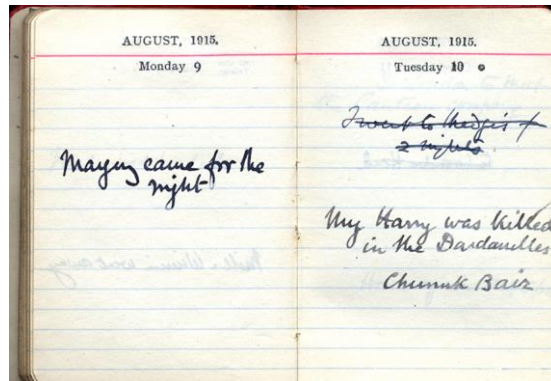 AUGUST, 1915.
Monday 9
came for the
night
AUGUST, 1915.
Tuesday 10
I went to
2 nights
My Harry was killed
in the Dardanelles
Chunuk Bair